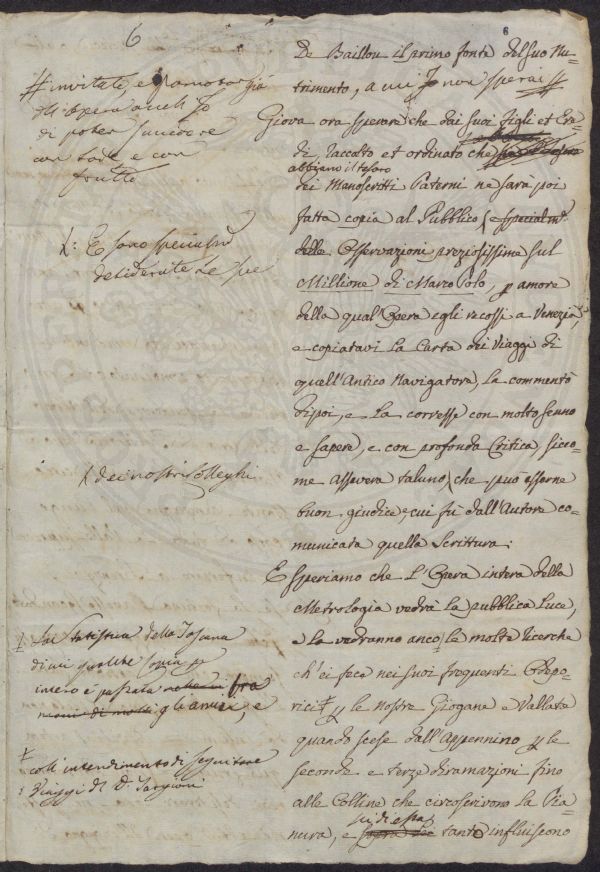 6
6
De Baillou il primo fonte del suo Nu-
trimento, a cui
Giova ora sperare che dai suoi figli et Ere-
di, raccolto et ordinato che
abbiano il tesoro
dei Manoscritti Paterni ne sarà poi
fatta copia al Pubblico, e specialmte
delle Osservazioni preziosissime sul
Millione di Marco Polo, p amore
della qual'Opera egli recossi a Venezia,
e copiatavi la Carta dei Viaggi di
quell'Antico Navigatore, la commentò
dipoi, e la corresse con molto senno
e sapere, e con profonda Critica, sicco-
me assevera taluno che può esserne
buon giudice, cui fù dall'Autore co-
municata quella Scrittura:
E speriamo che l'Opera intera della
Metrologia vedrà la pubblica luce,
e la vedranno anco le molte ricerche
ch'ei fece nei suoi frequenti Odepo-
rici p le nostre Giogane e Vallate
quando scese dall'Appennino p le
seconde e terze diramazioni fino
alle Colline che circoscrivono la Pia-
nura, e
su di essa
tanto influiscono
# invitate, e
di poter
con lode e con
frutto
E sono specialmte
desiderate le
dei nostri Colleghi
Statistica della Toscana
di cui qualche copia
intero è passata
gli amici, e
coll'intendimento di seguitare
i Viaggi del D. Targioni